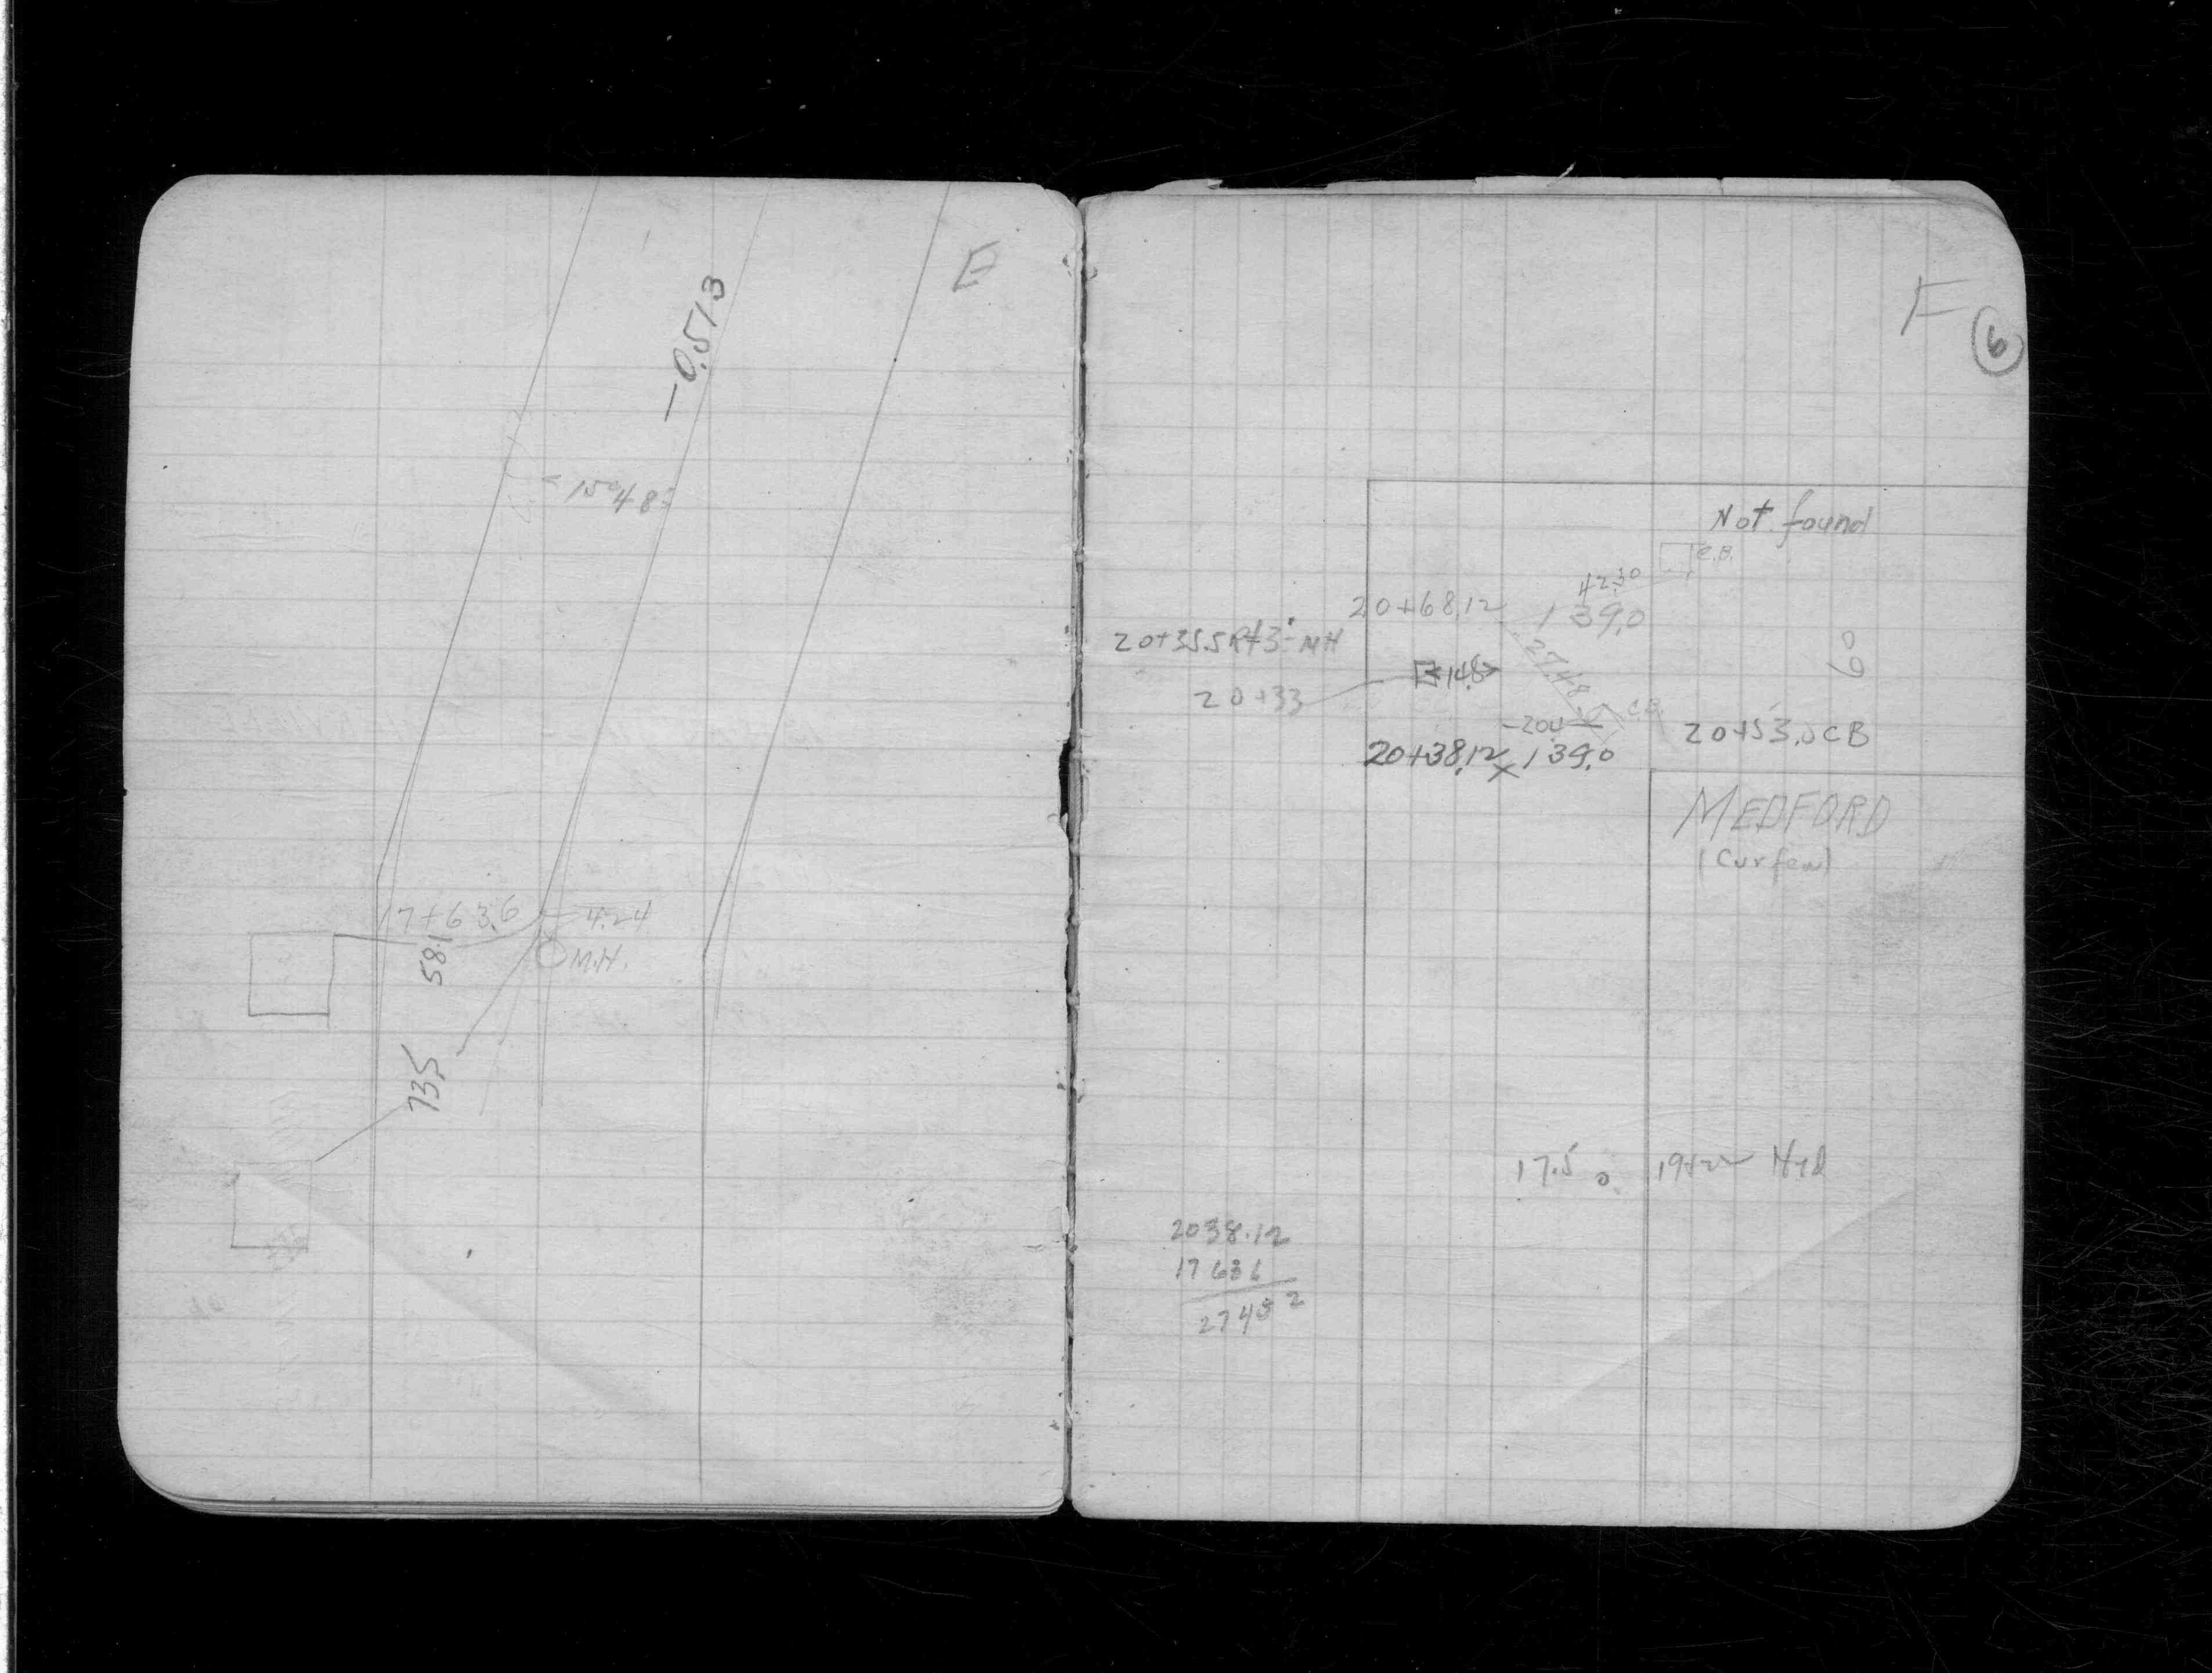 E
-0.513
15°48'
17+63.6
4.24
58.1
M.H.
73.5
F
6
Not found
C.B.
42.30
20+68.12
139.0
20+35.5 Rt 3'- MH
27.48
14.8
60
20+33
C.B.
-200
20+53.0 CB
20+38.12 x 139.0
MEDFORD
(Curfew)
17.5
19+22 Hyd
2038.12
1763 6
274 5 2